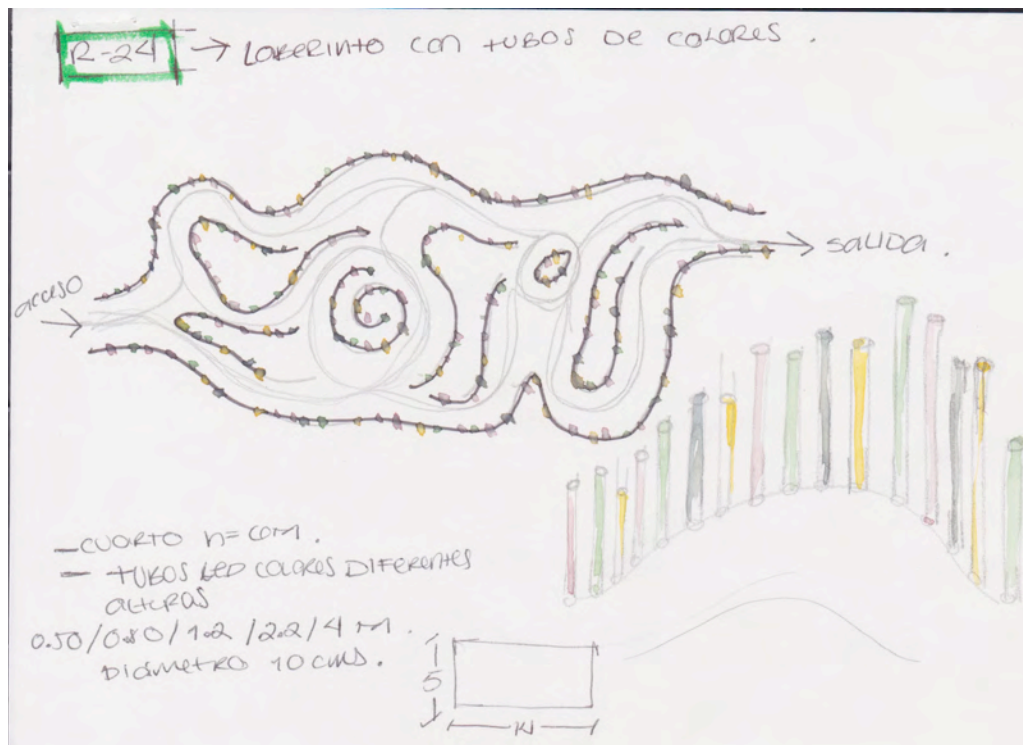 R-24 → LABERINTO CON TUBOS DE COLORES.
acceso
SALIDA.
- CUARTO h=
- TUBOS LED COLORES DIFERENTES
ALTURAS
0.50/0.80/1.2/2.2/4 M.
DIÁMETRO 10 CMS.
5